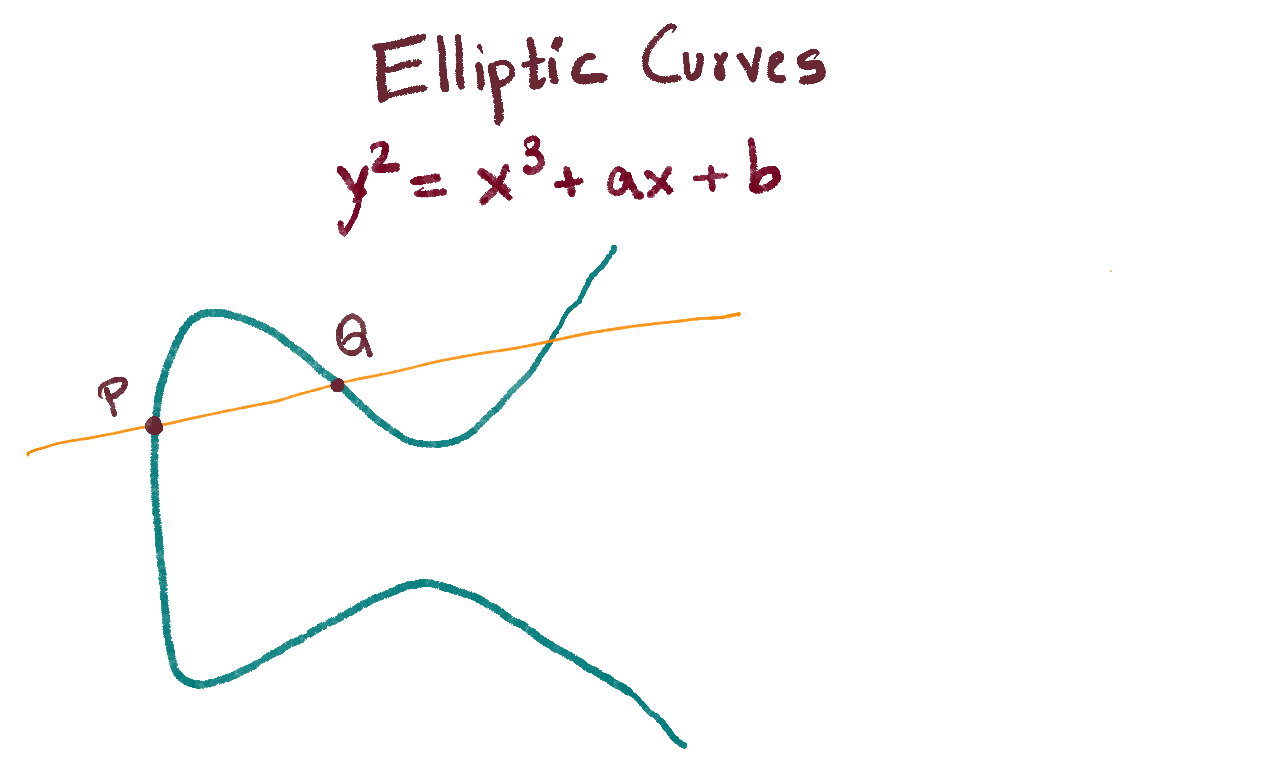 Elliptic Curves
y² = x³ + ax + b
Q
P